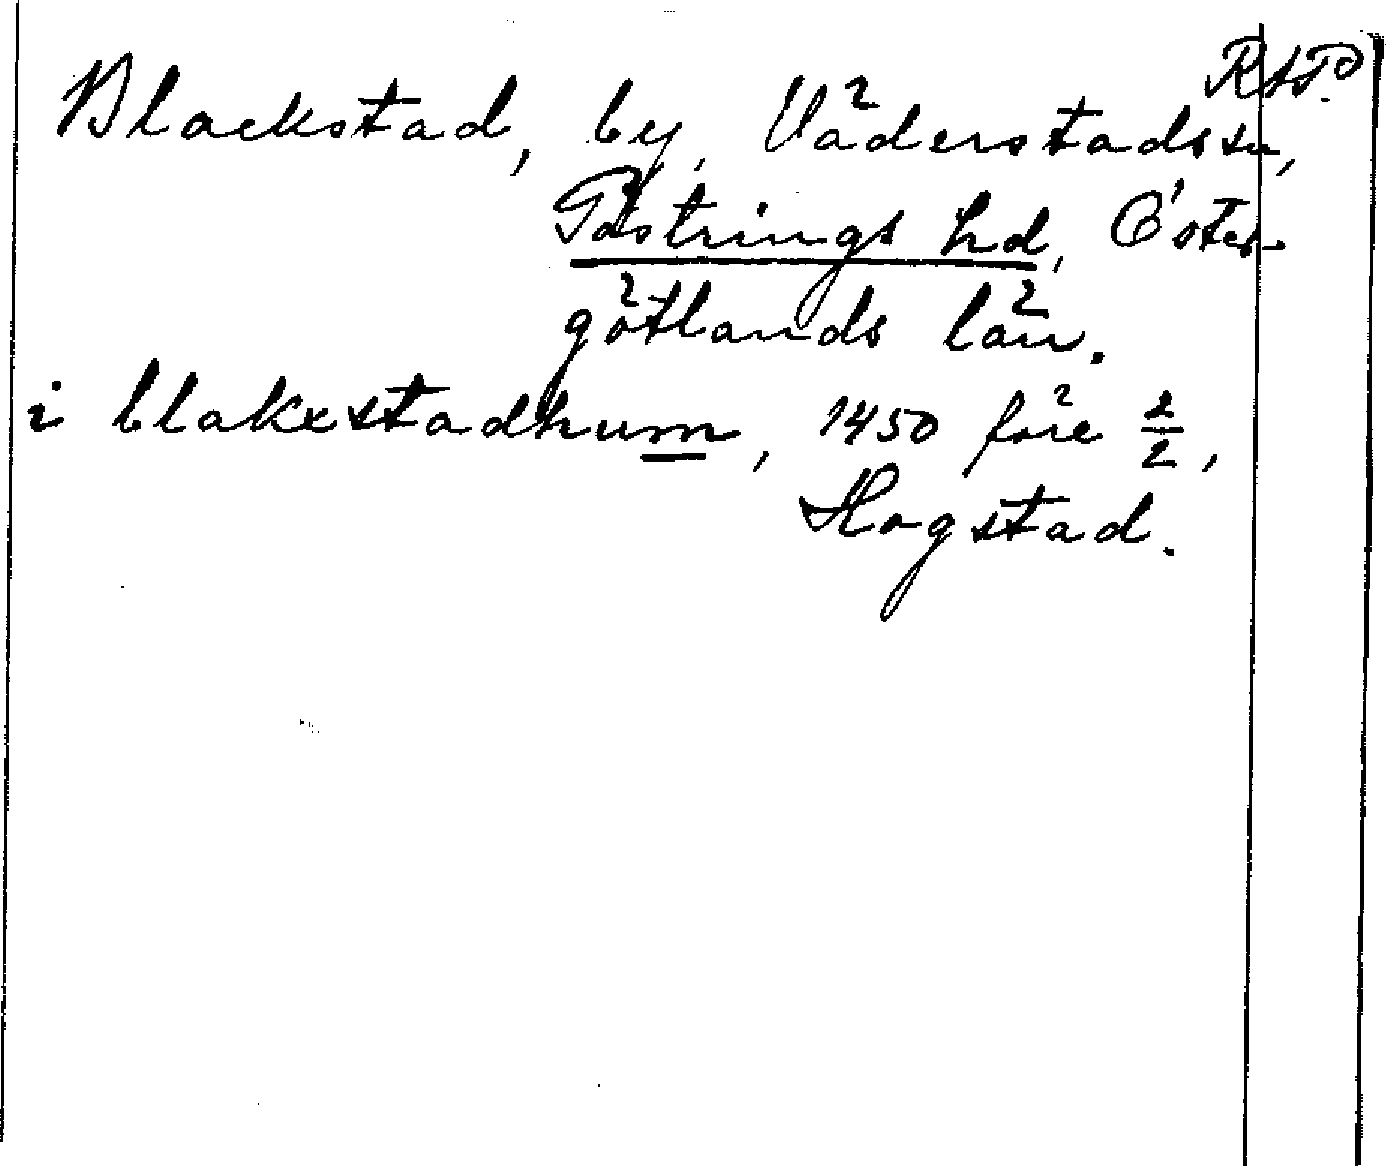 RAP.
Blackstad, by, Väderstads sn,
Göstrings hd, Öster-
götlands län.
i blakxstadhum, 1450 före 2/2,
Hogstad.